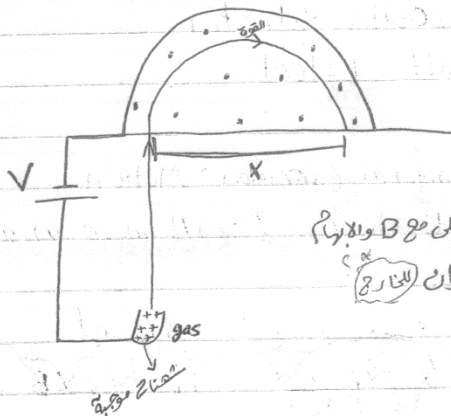 القوة
x
V
لى مع B والابهام
ان للخارج
gas
++
+++
+++
شحنات موجبة